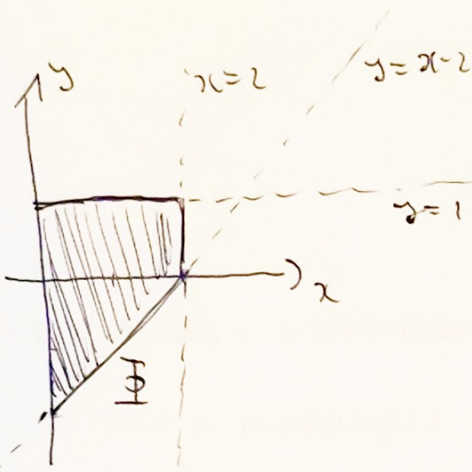 y
x=2
y=x-2
y=1
x
Φ